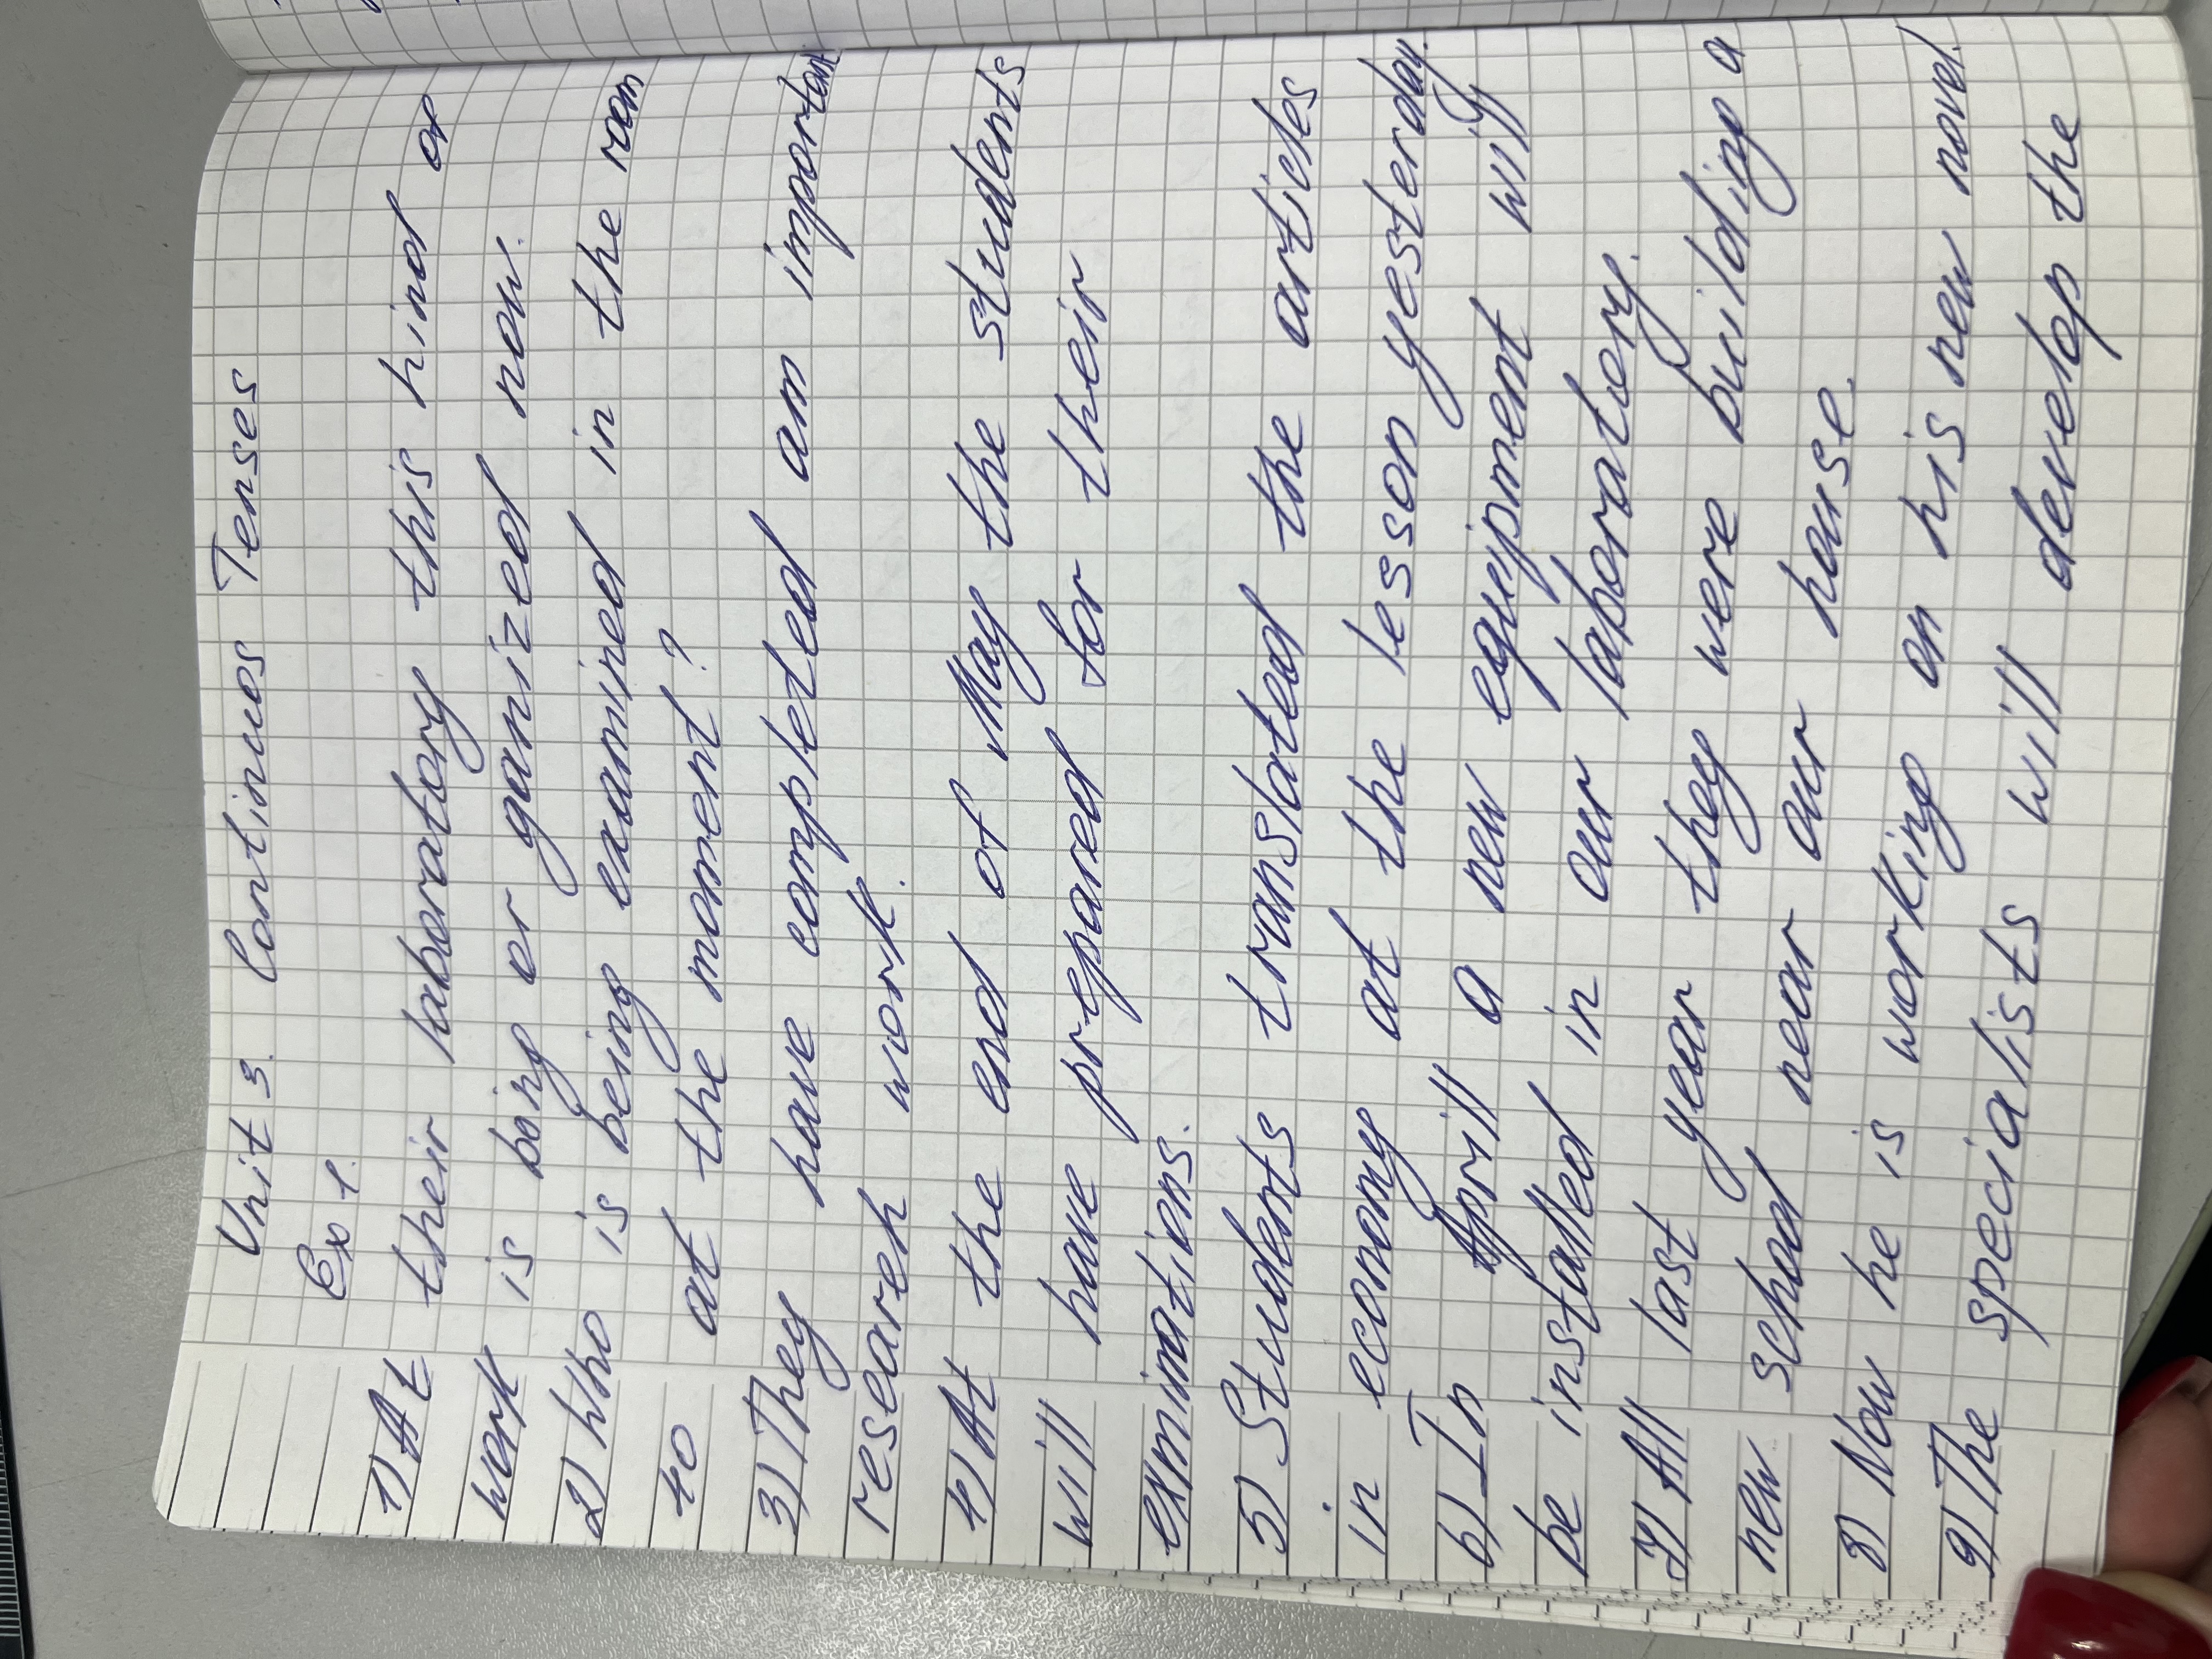 Unit 3. Continuos Tenses
Ex 1.
1) At their laboratory this kind of
work is being organized now.
2) Who is being examined in the room
40 at the moment?
3) They have completed am important
research work.
4) At the end of May the students
will have prepared for their
exminations.
5) Students translated the articles
in economy at the lesson yesterday.
6) In Aprill a new equipment will
be installed in our laboratory.
7) All last year they were building a
new school near our house.
8) Now he is working on his new novel.
9) The specialists will develop the